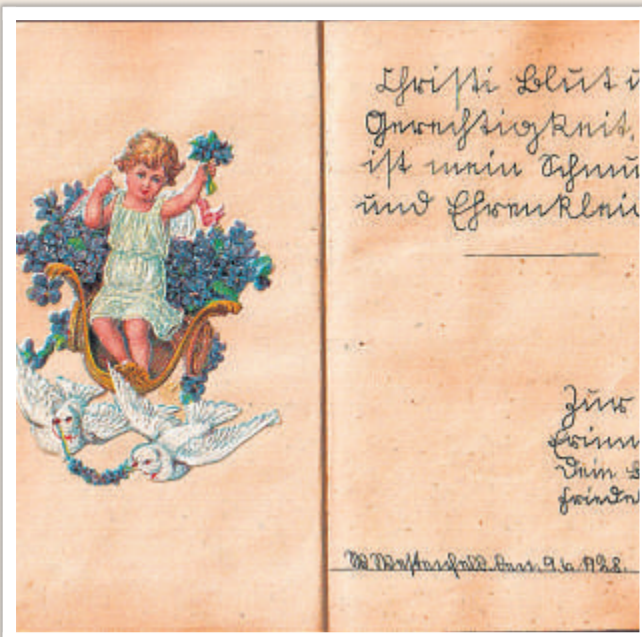 Christi Blut u
Gerechtigkeit,
ist mein Schmu
und Ehrenklei
Zur
Erinn
Dein
Friede
den 9.6.1928.